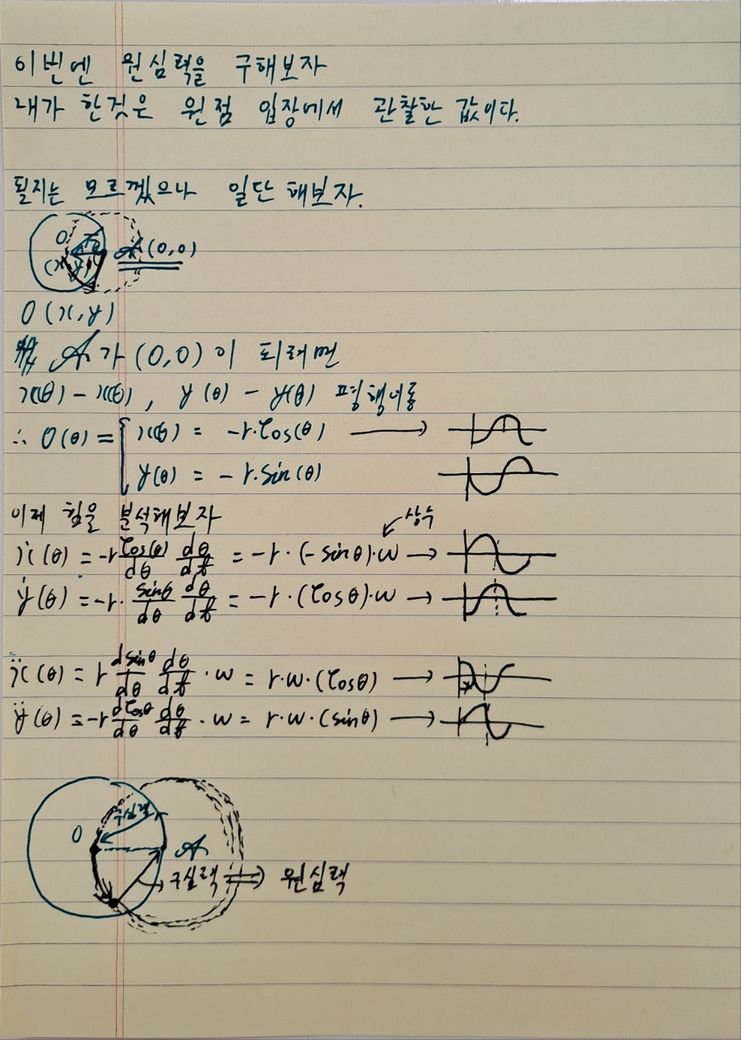 이번엔 원심력을 구해보자
내가 한것은 원점 입장에서 관찰한 값이다.
될지는 모르겠으나 일단 해보자.
O
A (0,0)
(x, y)
O (x, y)
A가 (0,0)이 되려면
x(θ) - x(θ), y(θ) - y(θ) 평행이동
∴ O(θ) = { x(θ) = -r·cos(θ) →
y(θ) = -r·sin(θ)
이제 힘을 분석해보자
상수
ẋ(θ) = -r cos(θ)/dθ dθ/dt = -r·(-sinθ)·w →
ẏ(θ) = -r· sinθ/dθ dθ/dt = -r·(cosθ)·w →
ẍ(θ) = r dsinθ/dθ dθ/dt · w = r·w·(cosθ) →
ÿ(θ) = -r dcosθ/dθ dθ/dt · w = r·w·(sinθ) →
구심력
O A
구심력 ⇒ 원심력